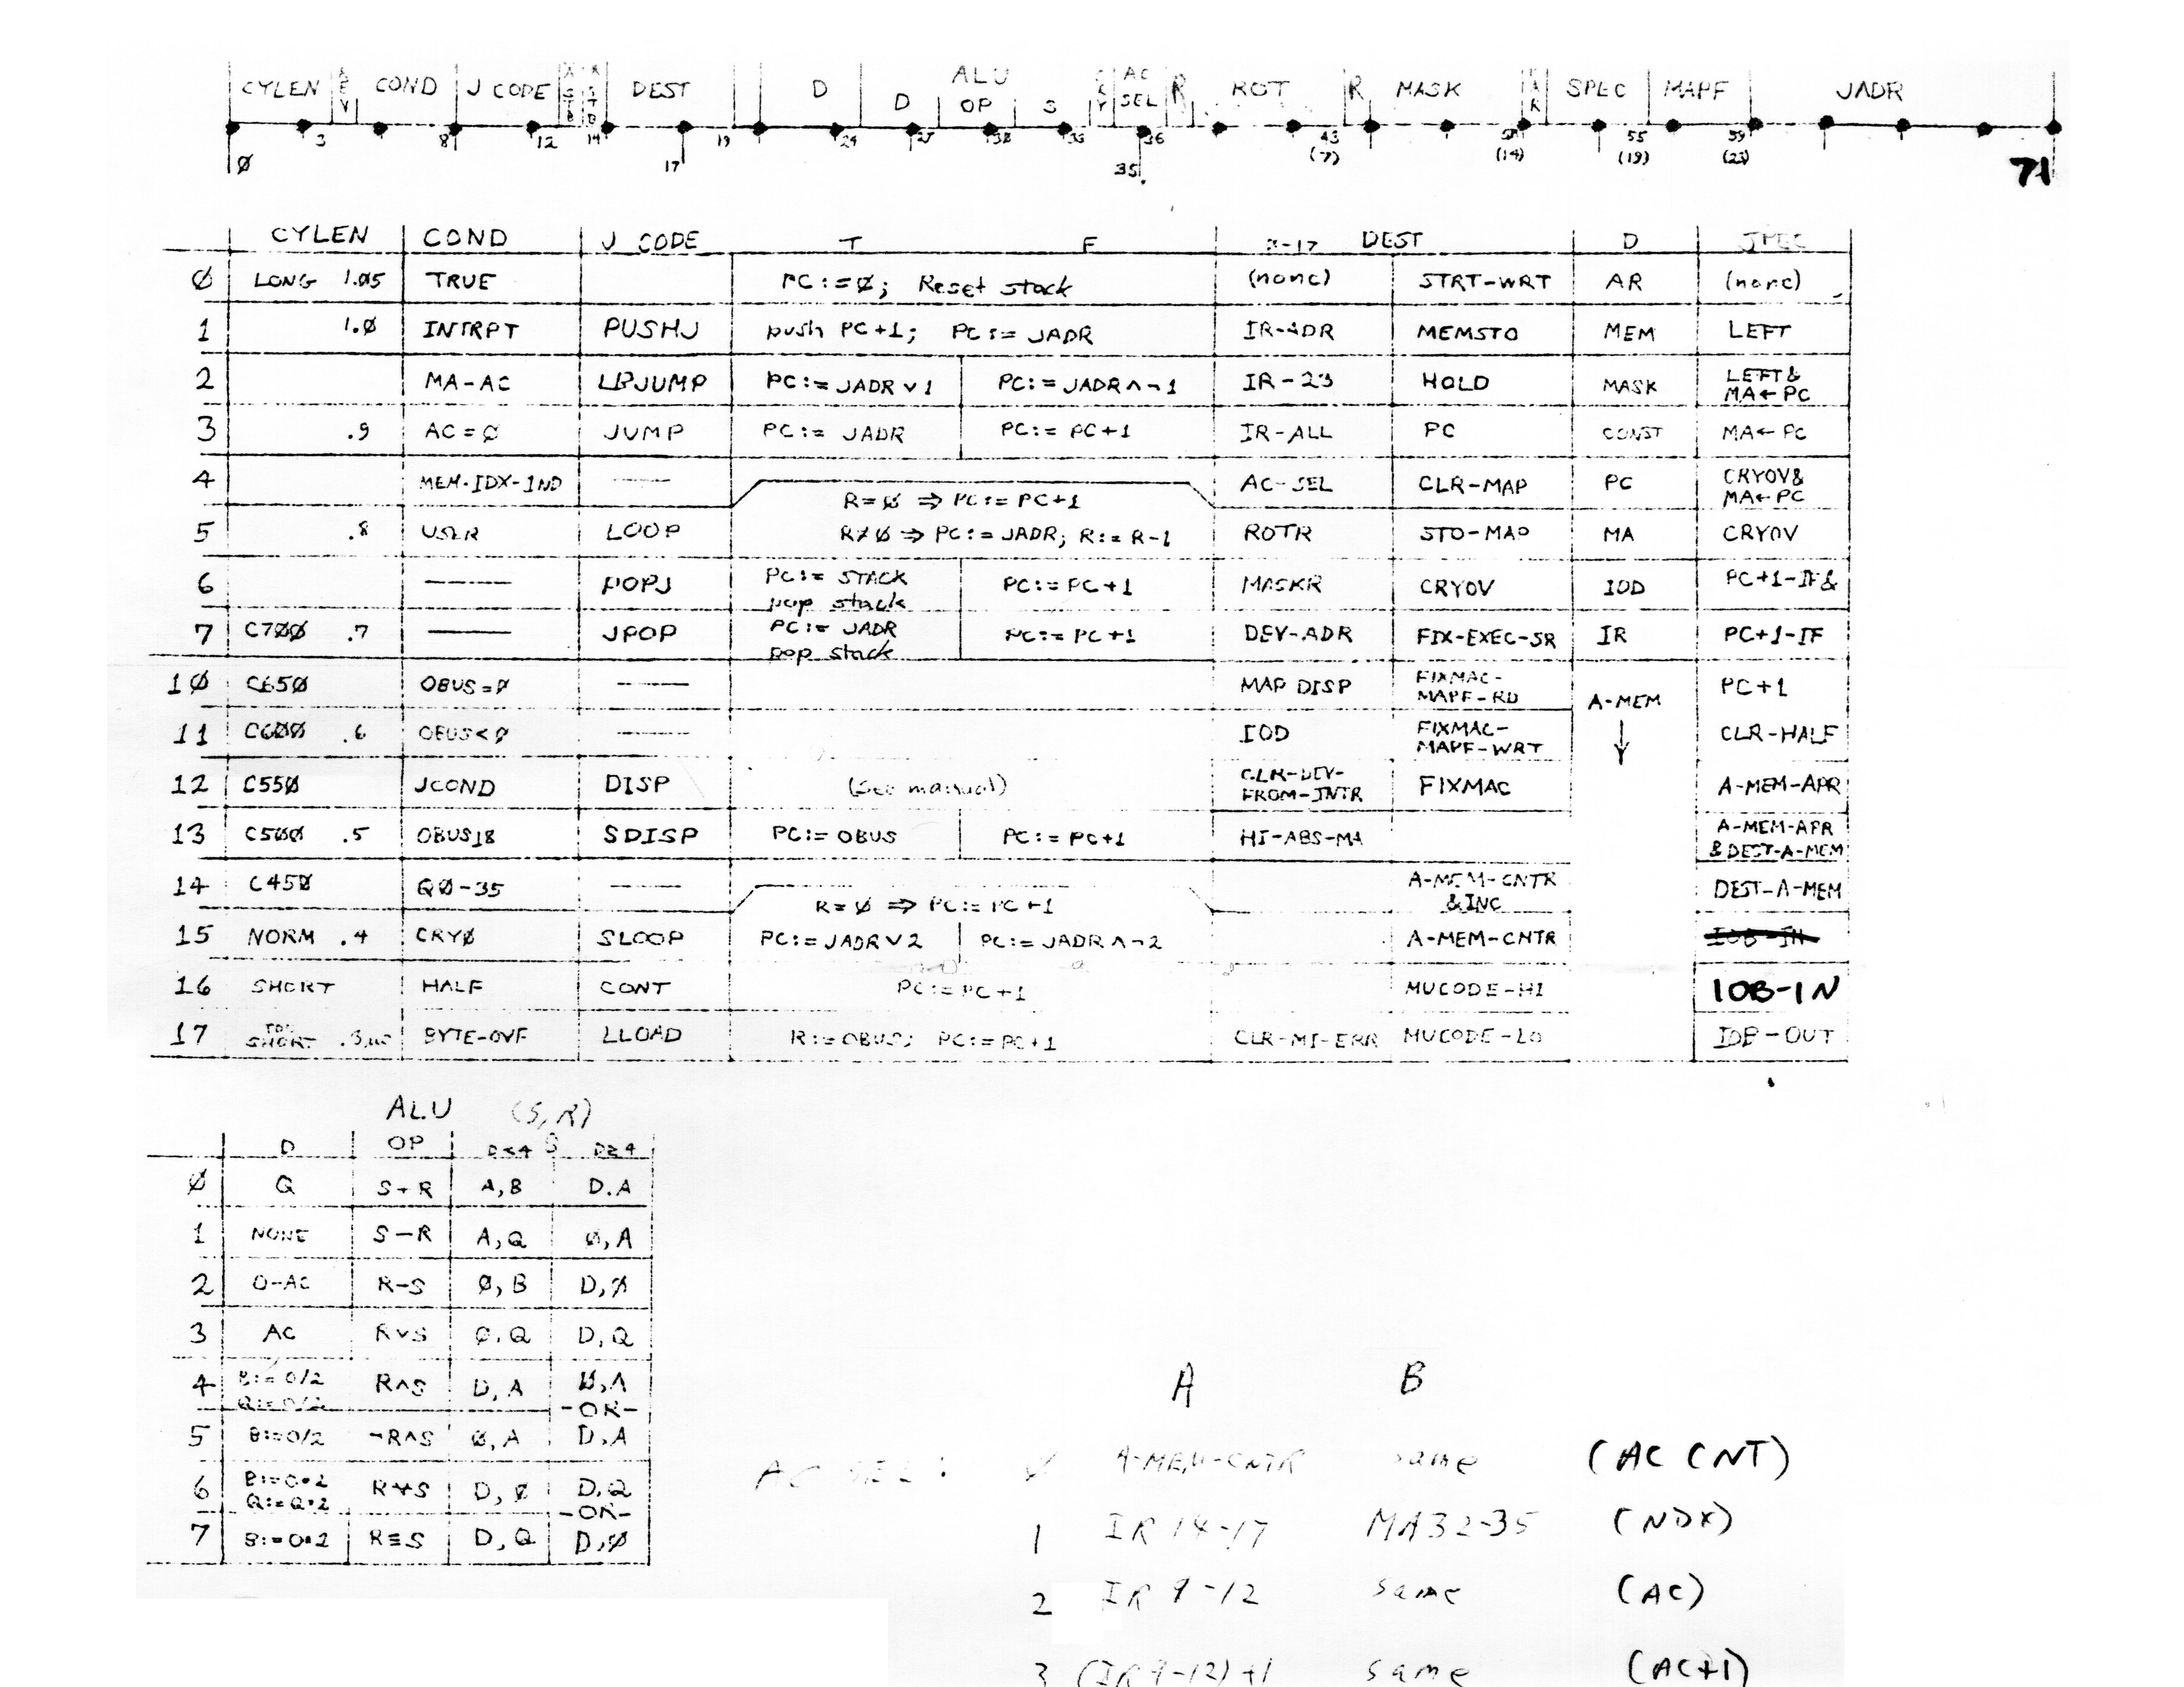 CYLEN COND J CODE DEST D D ALU OP S AC SEL R ROT R MASK SPEC MAPF JADR
Ø 3 8 12 14 17 19 24 27 35 36 43 (7) (14) 55 (19) 59 (23) 71
CYLEN COND J CODE T F DEST D SPEC
Ø LONG 1.05 TRUE PC:=Ø; Reset stack (none) STRT-WRT AR (none)
1 1.Ø INTRPT PUSHJ push PC+1; PC:= JADR IR-ADR MEMSTO MEM LEFT
2 MA-AC LBJUMP PC:= JADR∨1 PC:= JADR∧¬1 IR-23 HOLD MASK LEFT& MA←PC
3 .9 AC=Ø JUMP PC:= JADR PC:= PC+1 IR-ALL PC CONST MA←PC
4 MEM-IDX-IND —— R=Ø ⇒ PC:= PC+1 AC-SEL CLR-MAP PC CRYOV& MA←PC
5 .8 USER LOOP R≠Ø ⇒ PC:= JADR; R:= R-1 ROTR STO-MAP MA CRYOV
6 —— POPJ PC:= STACK pop stack PC:= PC+1 MASKR CRYOV IOD PC+1-IF&
7 C7ØØ .7 —— JPOP PC:= JADR pop stack PC:= PC+1 DEV-ADR FIX-EXEC-SR IR PC+1-IF
1Ø C65Ø OBUS=Ø —— MAP DISP FIXMAC-MAPF-RD A-MEM PC+1
11 C6ØØ .6 OBUS<Ø —— IOD FIXMAC-MAPF-WRT ↓ CLR-HALF
12 C55Ø JCOND DISP (See manual) CLR-DEV-FROM-INTR FIXMAC A-MEM-APR
13 C5ØØ .5 OBUS18 SDISP PC:= OBUS PC:= PC+1 HI-ABS-MA A-MEM-APR & DEST-A-MEM
14 C45Ø QØ-35 —— R=Ø ⇒ PC:= PC+1 A-MEM-CNTR &INC DEST-A-MEM
15 NORM .4 CRYØ SLOOP PC:=JADR∨2 PC:= JADR∧¬2 A-MEM-CNTR IOB-IN
16 SHORT HALF CONT PC:= PC+1 MUCODE-HI IOB-IN
17 SHORT BYTE-OVF LLOAD R:=OBUS; PC:=PC+1 CLR-MI-ERR MUCODE-LO IOB-OUT
ALU (S,R)
D OP D<4 S D≥4
Ø Q S+R A,B D.A
1 NONE S-R A,Q Ø,A
2 O-AC R-S Ø,B D,Ø
3 AC R∨S Ø.Q D,Q
4 B:=O/2 Q:=Q/2 R∧S D,A D,A
-OR-
5 B:=O/2 ¬R∧S Ø,A D.A
6 B:=O*2 Q:=Q*2 R∀S D,Ø D.Q
-OR-
7 B:=O*2 R≡S D,Q D,Ø
A B
AC SEL: Ø A-MEM-CNTR same (AC CNT)
1 IR 14-17 MA32-35 (NDX)
2 IR 9-12 same (AC)
3 (IR 9-12)+1 same (AC+1)